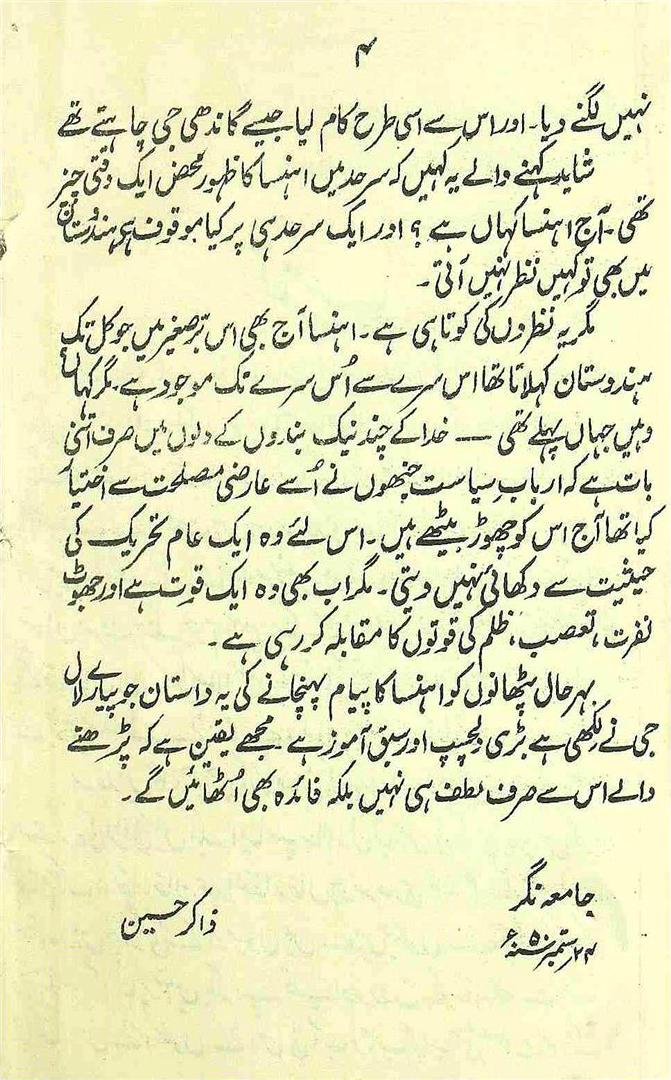 ۴
نہیں لگنے دیا۔ اور اس سے اسی طرح کام لیا جیسے گاندھی جی چاہتے تھے
شاید کہنے والے یہ کہیں کہ سرحد میں اہنسا کا ظہور محض ایک وقتی چیز
تھی۔ آج اہنسا کہاں ہے؟ اور ایک سرحد ہی پر کیا موقوف ہے ہندوستان
میں بھی تو کہیں نظر نہیں آتی۔
مگر یہ نظروں کی کوتاہی ہے۔ اہنسا آج بھی اس برصغیر میں جو کل تک
ہندوستان کہلاتا تھا اس سرے سے اُس سرے تک موجود ہے۔ مگر کہاں؟
وہیں جہاں پہلے تھی — خدا کے چند نیک بندوں کے دلوں میں صرف اتنی
بات ہے کہ اربابِ سیاست جنھوں نے اُسے عارضی مصلحت سے اختیار
کیا تھا آج اس کو چھوڑ بیٹھے ہیں۔ اس لئے وہ ایک عام تحریک کی
حیثیت سے دکھائی نہیں دیتی۔ مگر اب بھی وہ ایک قوت ہے اور جھوٹ
نفرت، تعصب، ظلم کی قوتوں کا مقابلہ کر رہی ہے۔
بہرحال پٹھانوں کو اہنسا کا پیام پہنچانے کی یہ داستان جو پیارے لال
جی نے لکھی ہے بڑی دلچسپ اور سبق آموز ہے۔ مجھے یقین ہے کہ پڑھنے
والے اس سے صرف لطف ہی نہیں بلکہ فائدہ بھی اُٹھائیں گے۔
جامعہ نگر
ذاکر حسین
۲۴ ستمبر ۵۰ء